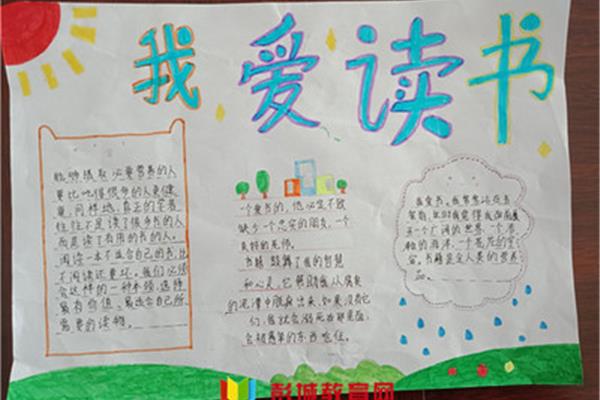 我爱读书
能够摄取必要营养的人
要比吃得很多的人更健
康,同样地,真正的学者
往往不是读了很多书的人
而是读了有用的书的人。
阅读一本不适合自己的书,比
不阅读还要坏。我们必须
会这样的一种本领,选择
最有价值、最适合自己所
需要的读物。
一个爱书的人,他必定不致
缺少一个忠实的朋友,一个
良好的老师。
书籍鼓舞了我的智慧
和心灵,它帮助我从腐臭
的泥潭中脱身出来,如果没有它
们,我就会溺死在那里面,
会被愚笨的东西呛住。
我爱书。我常常站在书
架前,这时我觉得我面前展
示一个广阔的世界,一个浩
瀚的海洋,一个苍茫的宇
宙。书籍是全人类的营养
品。
彭城教育网